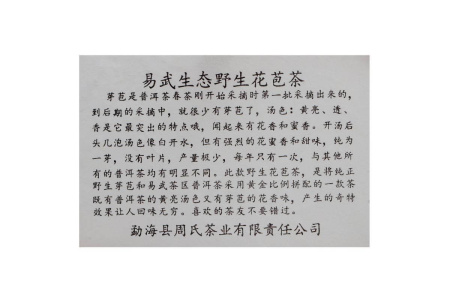 易武生态野生花苞茶
芽苞是普洱茶春茶刚开始采摘时第一批采摘出来的,
到后期的采摘中，就很少有芽苞了，汤色：黄亮、透、
香是它最突出的特点哦，闻起来有花香和蜜香。开汤后
头几泡汤色像白开水，但有强烈的花蜜香和甜味，纯为
一芽，没有叶片，产量极少，每年只有一次，与其他所
有的普洱茶均有明显不同。此款野生花苞茶，是将纯正
野生芽苞和易武茶区普洱茶采用黄金比例拼配的一款茶
既有普洱茶的黄亮汤色又有芽苞的花香味，产生的奇特
效果让人回味无穷。喜欢的茶友不要错过。
勐海县周氏茶业有限责任公司